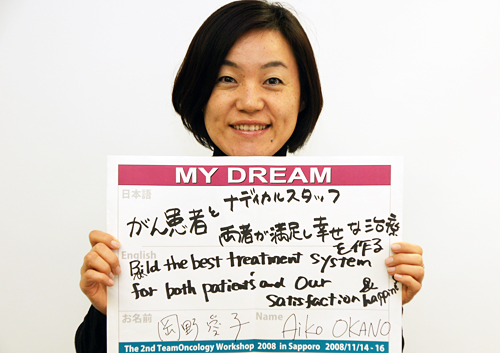 MY DREAM
日本語
がん患者とメディカルスタッフ
両者が満足し幸せな治療
を作る
English
Build the best treatment system
for both patients' and Our
satisfaction & happiness
お名前 岡野愛子 Name Aiko OKANO
The 2nd TeamOncology Workshop 2008 in Sapporo 2008/11/14 - 16